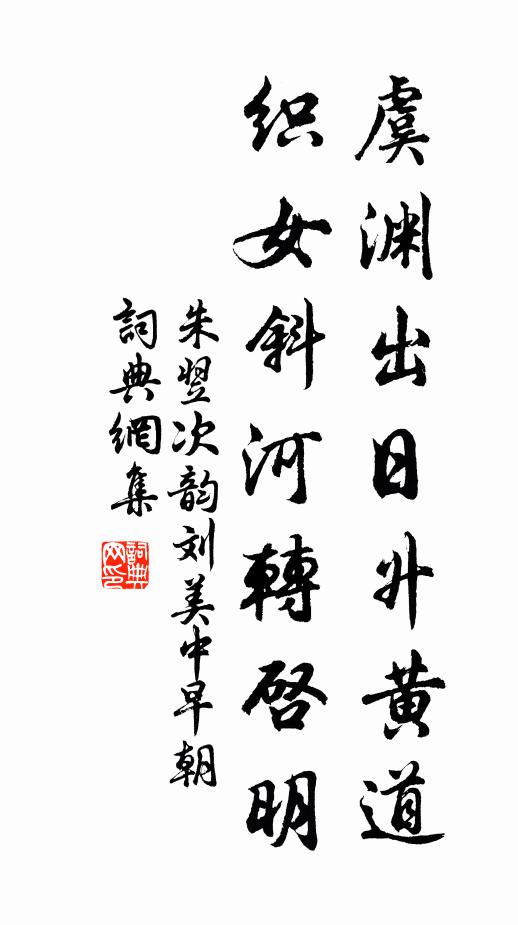 虞渊出日升黄道
织女斜河轉啓明
朱翌次韵刘美中早朝
詞典網集
詞典网印